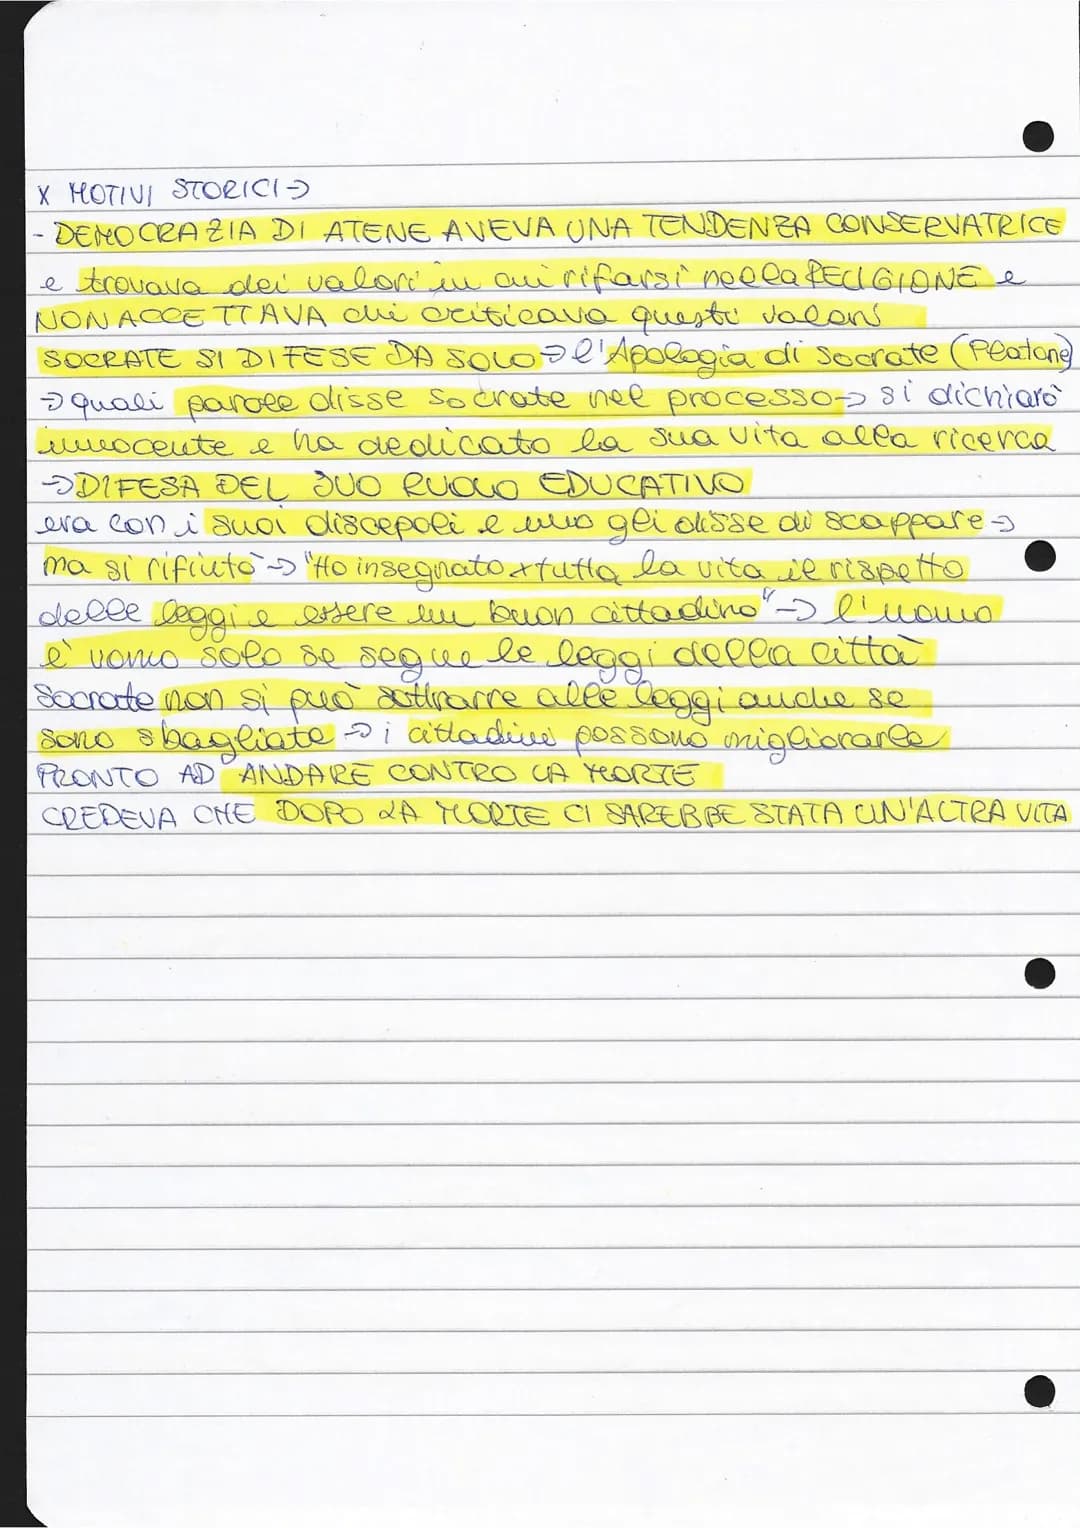 X MOTIVI STORICI →
- DEMOCRAZIA DI ATENE AVEVA UNA TENDENZA CONSERVATRICE
e trovava dei valori in cui rifarsi nella RELIGIONE e
NON ACCETTAVA chi criticava questi valori
SOCRATE SI DIFESE DA SOLO → l'Apologia di Socrate (Platone)
→ quali parole disse Socrate nel processo → si dichiarò
innocente e ha dedicato la sua vita alla ricerca
→ DIFESA DEL SUO RUOLO EDUCATIVO
era con i suoi discepoli e uno gli disse di scappare →
ma si rifiutò → "Ho insegnato x tutta la vita il rispetto
delle leggi e essere un buon cittadino" → l'uomo
è uomo solo se segue le leggi della città
Socrate non si può sottrarre alle leggi anche se
sono sbagliate → i cittadini possono migliorarle
PRONTO AD ANDARE CONTRO LA MORTE
CREDEVA CHE DOPO LA MORTE CI SAREBBE STATA UN'ALTRA VITA